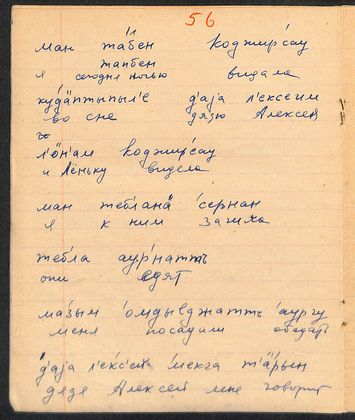 56
ман та́бен коджирса́у
тапбен
я сегодня ночью видела
ку́дӓптыпыл'е д'аjа л'ексеим
во сне дядю Алексея
л'о́н'ам коджирса́у
и Лёньку видела
ман теблани́ се́рнан
я к ним зашла
те́бла аурна́ттъ
они едят
ма́зым о́мдылджаттъ а́ургу
меня посадили обедать
д'аjа л'ексе́й ме́кга т'ӓ́рын
дядя Алексей мне говорит